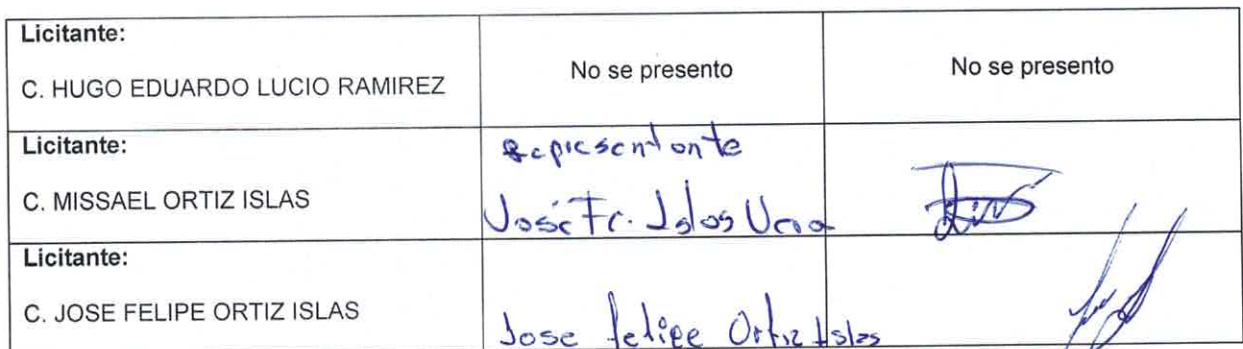 Licitante:
C. HUGO EDUARDO LUCIO RAMIREZ
No se presento
No se presento
Licitante:
C. MISSAEL ORTIZ ISLAS
Representante
José Fc. Islas Vera
Licitante:
C. JOSE FELIPE ORTIZ ISLAS
Jose felipe Ortiz Islas